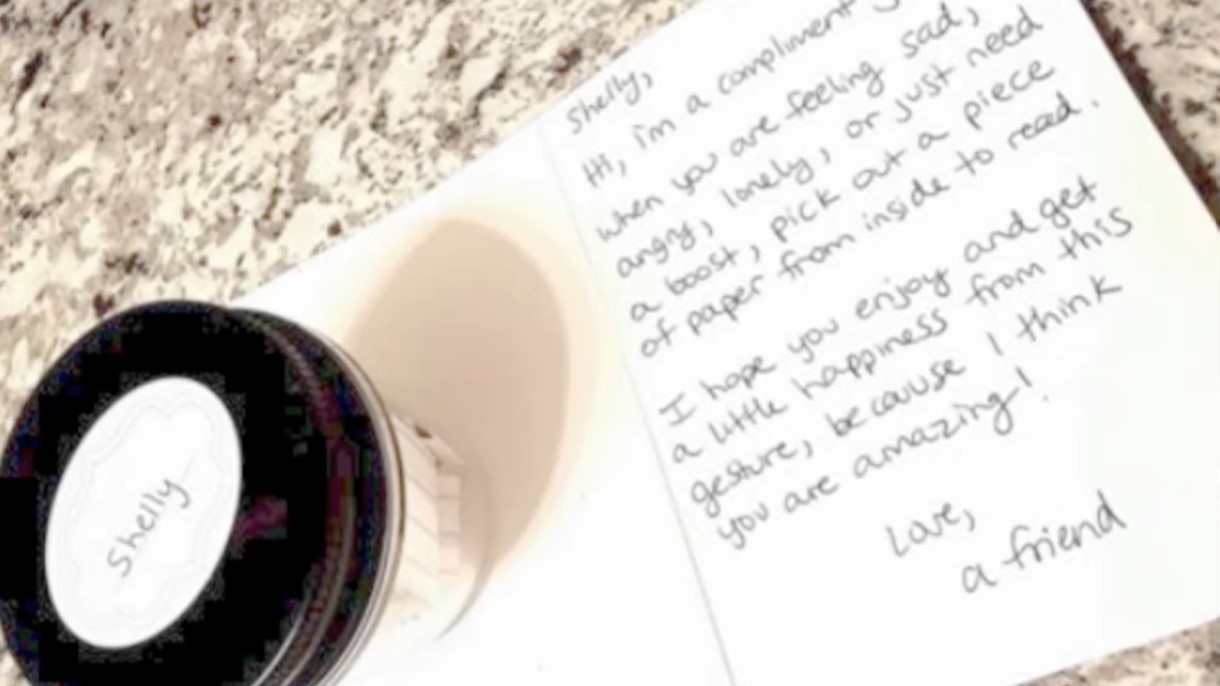 Shelly,
Hi, i'm a compliment
when you are feeling sad,
angry, lonely, or just need
a boost, pick out a piece
of paper from inside to read.
I hope you enjoy and get
a little happiness from this
gesture, because I think
you are amazing!
Love,
a friend
Shelly